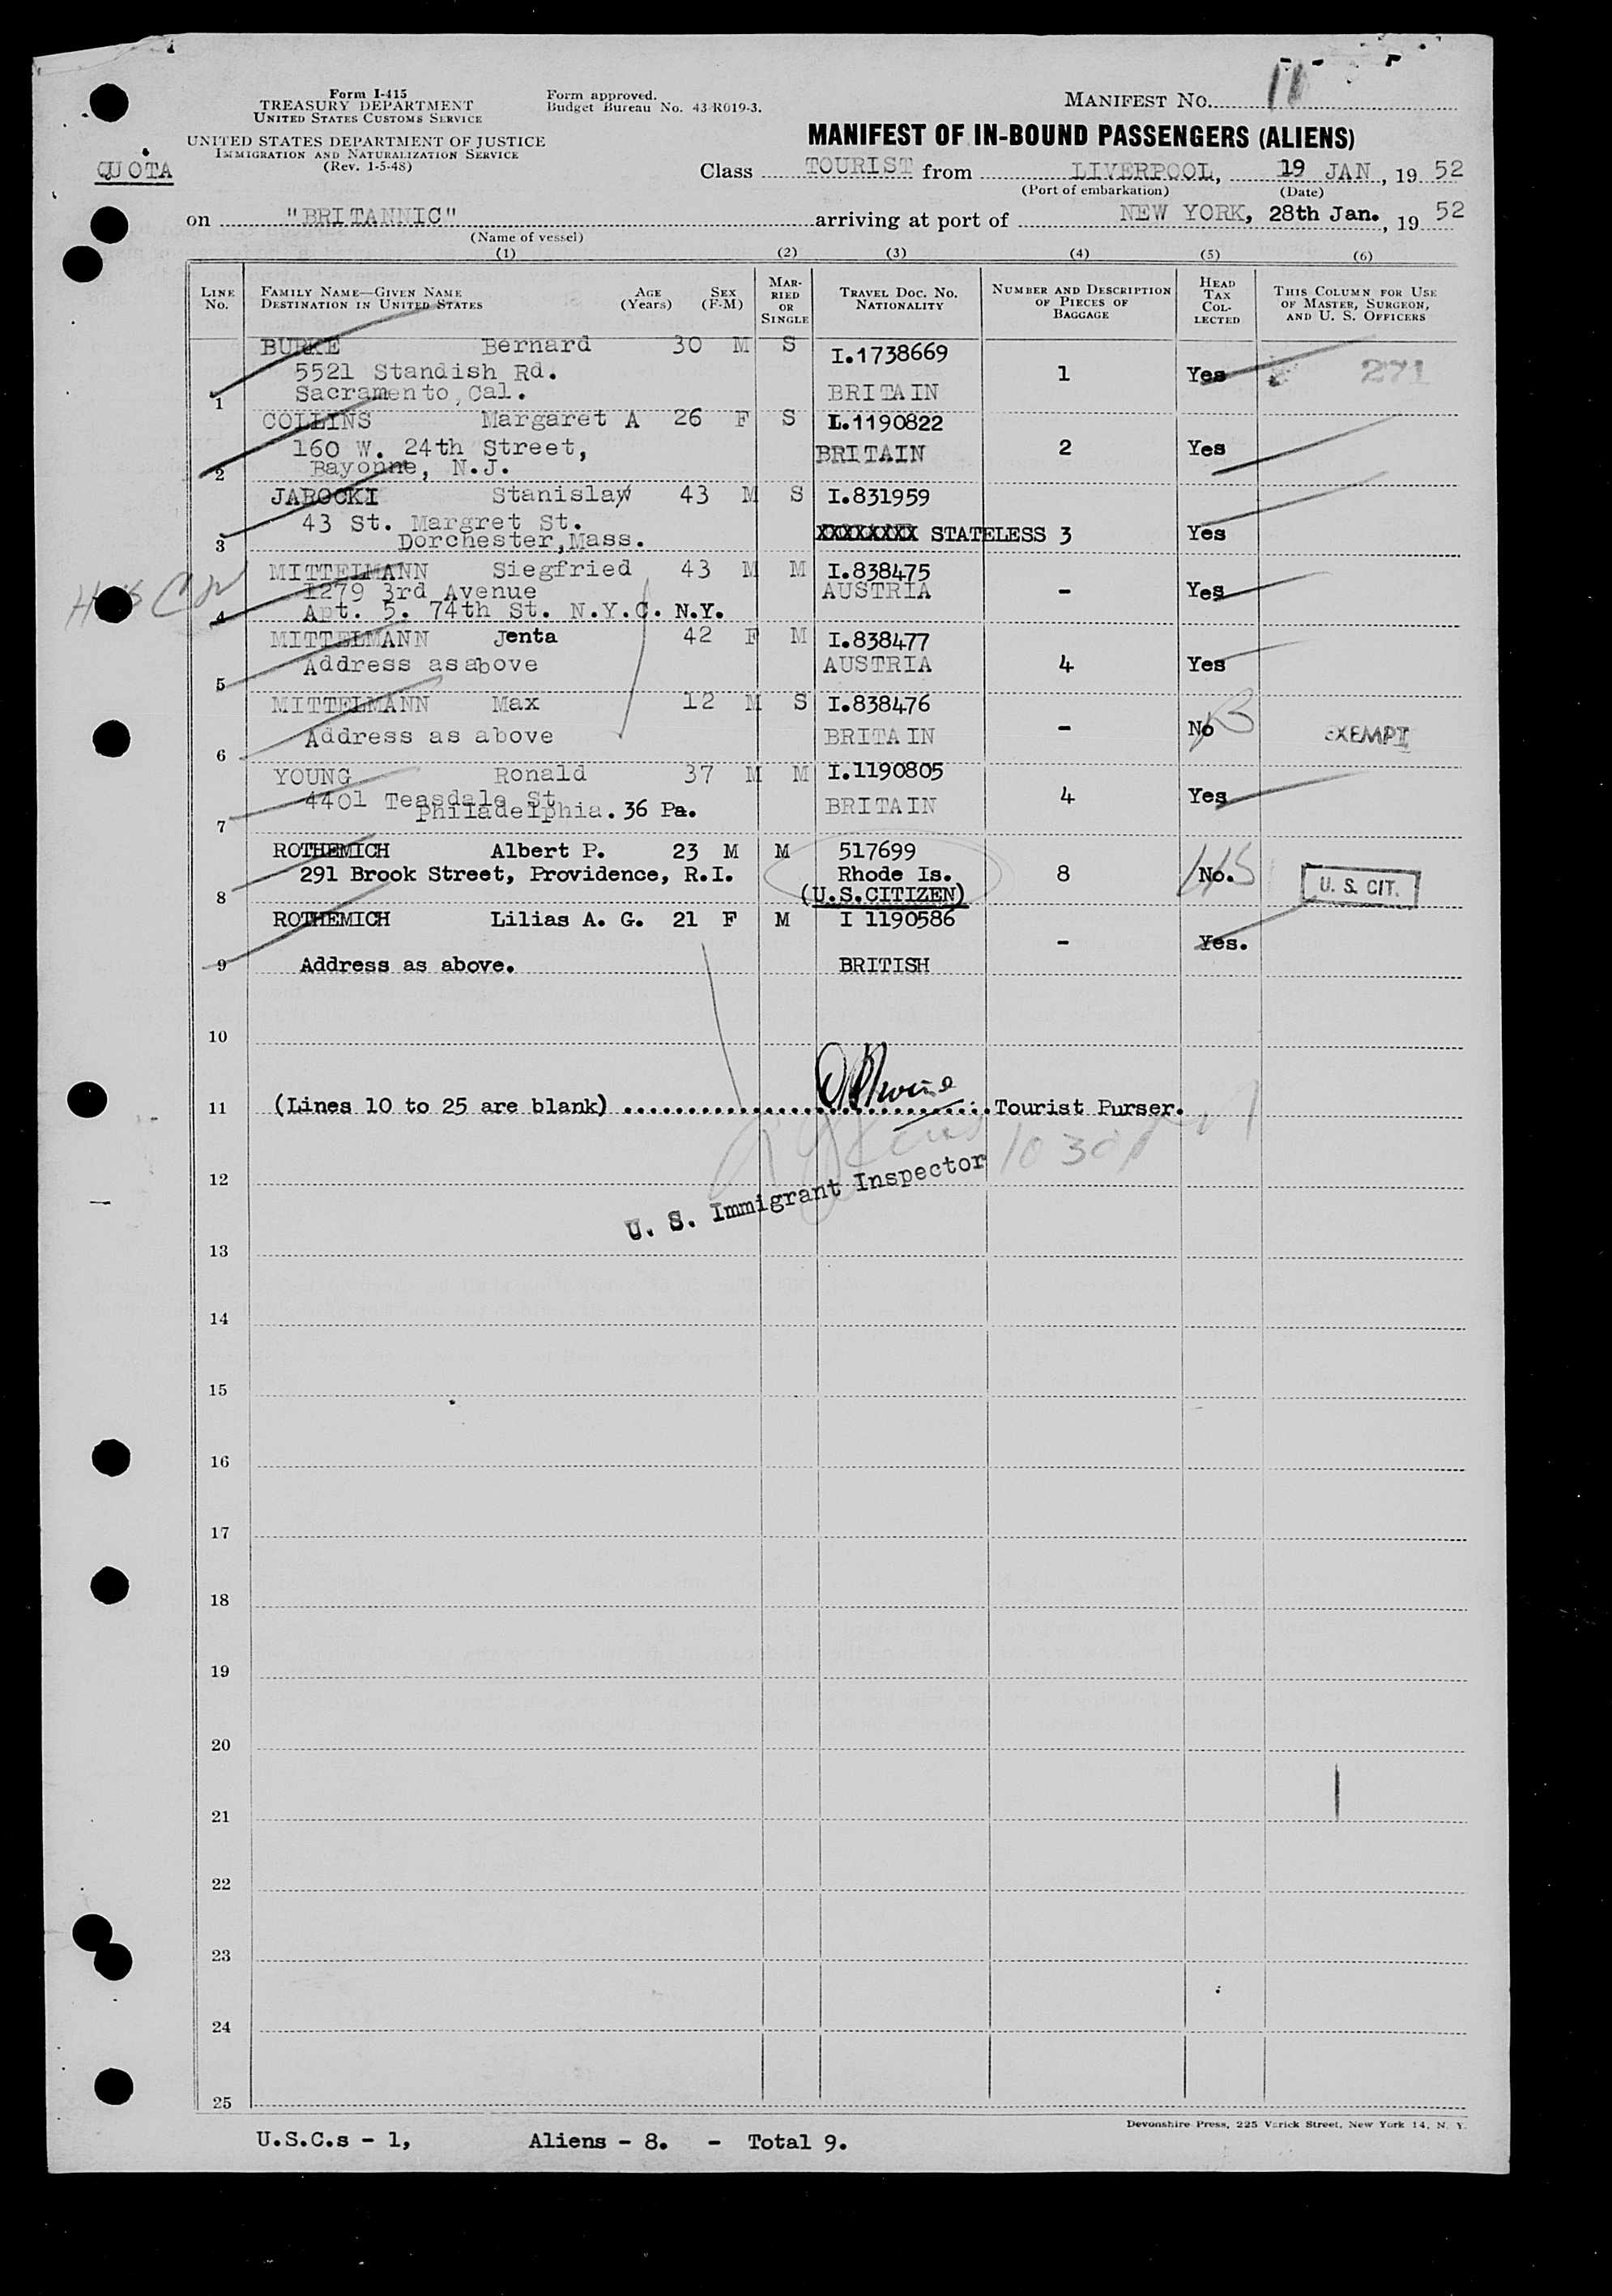 Form I-415
TREASURY DEPARTMENT
UNITED STATES CUSTOMS SERVICE
UNITED STATES DEPARTMENT OF JUSTICE
IMMIGRATION AND NATURALIZATION SERVICE
(Rev. 1-5-48)
Form approved.
Budget Bureau No. 43-R019-3.
MANIFEST No. 11
MANIFEST OF IN-BOUND PASSENGERS (ALIENS)
QUOTA
Class TOURIST from LIVERPOOL, 19 JAN, 1952
(Port of embarkation) (Date)
on "BRITANNIC" arriving at port of NEW YORK, 28th Jan., 1952
(Name of vessel)
(1) (2) (3) (4) (5) (6)
LINE No. FAMILY NAME—GIVEN NAME DESTINATION IN UNITED STATES AGE (Years) SEX (F-M) MARRIED OR SINGLE TRAVEL DOC. NO. NATIONALITY NUMBER AND DESCRIPTION OF PIECES OF BAGGAGE HEAD TAX COLLECTED THIS COLUMN FOR USE OF MASTER, SURGEON, AND U. S. OFFICERS
BURKE Bernard 30 M S I.1738669
5521 Standish Rd. 1 Yes 271
1 Sacramento, Cal. BRITAIN
COLLINS Margaret A 26 F S I.1190822
160 W. 24th Street, BRITAIN 2 Yes
2 Bayonne, N.J.
JAROCKI Stanislaw 43 M S I.831959
43 St. Margret St.
3 Dorchester, Mass. XXXXXXXX STATELESS 3 Yes
MITTELMANN Siegfried 43 M M I.838475
1279 3rd Avenue AUSTRIA - Yes
4 Apt. 5. 74th St. N.Y.C. N.Y.
MITTELMANN Jenta 42 F M I.838477
5 Address as above AUSTRIA 4 Yes
MITTELMANN Max 12 M S I.838476
6 Address as above BRITAIN - No EXEMPT
YOUNG Ronald 37 M M I.1190805
4401 Teasdale St BRITAIN 4 Yes
7 Philadelphia. 36 Pa.
ROTHEMICH Albert P. 23 M M 517699
291 Brook Street, Providence, R.I. Rhode Is. 8 No. U. S. CIT.
8 (U.S.CITIZEN)
ROTHEMICH Lilias A. G. 21 F M I 1190586
- Yes.
9 Address as above. BRITISH
10
11 (Lines 10 to 25 are blank) Tourist Purser.
10 30
12 U. S. Immigrant Inspector
13
14
15
16
17
18
19
20
21
22
23
24
25
Devonshire Press, 225 Varick Street, New York 14, N. Y.
U.S.C.s - 1, Aliens - 8. - Total 9.